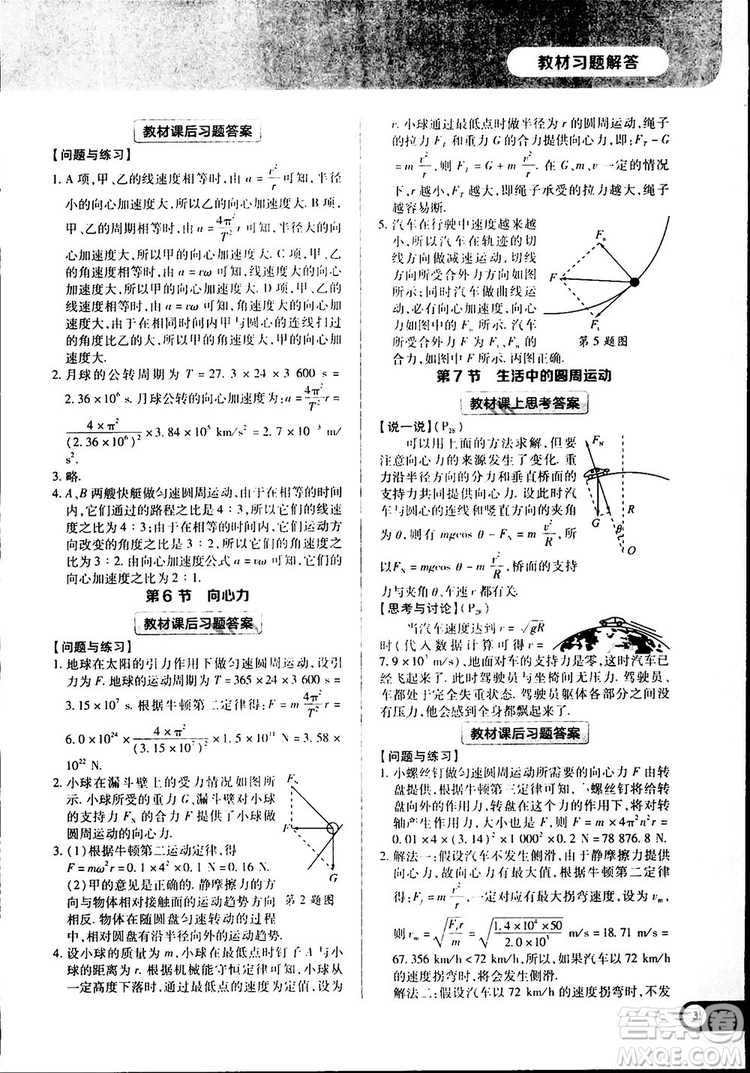 教材习题解答
教材课后习题答案
【问题与练习】
1. A 项,甲、乙的线速度相等时,由 a = v²/r 可知,半径
小的向心加速度大,所以乙的向心加速度大. B 项,
甲、乙的周期相等时,由 a = 4π²/T² r 可知,半径大的向心
加速度大,所以甲的向心加速度大. C 项,甲、乙
的角速度相等时,由 a = vω 可知,线速度大的向心
加速度大,所以乙的向心加速度大. D 项,甲、乙的
线速度相等时,由 a = vω 可知,角速度大的向心加
速度大,由于在相同时间内甲与圆心的连线扫过
的角度比乙大,所以甲的角速度大,甲的向心加速度
大.
2. 月球的公转周期为 T = 27.3 × 24 × 3 600 s =
2.36 × 10⁶ s. 月球公转的向心加速度为 a = 4π²/T² r =
4 × π²/(2.36 × 10⁶)² × 3.84 × 10⁵ km/s² = 2.7 × 10⁻³ m/
s².
3. 略.
4. A、B 两艘快艇做匀速圆周运动,由于在相同时间
内,它们通过的路程之比是 4∶3,所以它们的线速
度大小之比为 4∶3;由于在相同时间内,它们运动
方向改变的角度之比是 3∶2,所以它们的角速度之
比为 3∶2. 由于向心加速度公式 a = vω 所以它们的
向心加速度之比为 2∶1.
第 6 节 向心力
教材课后习题答案
【问题与练习】
1. 地球在太阳的引力作用下做匀速圆周运动,设引力
为 F. 地球的运动周期为 T = 365 × 24 × 3 600 s =
3.15 × 10⁷ s. 根据牛顿第二定律得: F = m 4π²/T² r =
6.0 × 10²⁴ × 4 × π²/(3.15 × 10⁷)² × 1.5 × 10¹¹ N = 3.58 ×
10²² N.
2. 小球在漏斗壁上的受力情况如图所
示. 小球所受的重力 G 与漏斗壁对小球
的支持力 F_N 的合力提供了小球做
圆周运动的向心力.
3. (1) 根据牛顿第二运动定律得, F =
mω²r = 0.1 × 4² × 0.1 N = 0.16 N.
(2) 甲的意见是正确的. 静摩擦力的方
向与物体相对接触面运动的趋势方向
相反. 物体在随圆盘匀速转动的过程中,
相对圆盘有沿半径向外的运动趋势.
F_N
F
G
第 2 题图
4. 设小球的质量为 m,小球过最低点时钉子 A 与小
球的距离为 r. 根据机械能守恒定律可知,小球从
一定高度下落时,通过最低点的速度为定值,设为
v. 小球通过最低点时做半径为 r 的圆周运动,绳子
的拉力 F_T 和重力 G 的合力提供向心力,即: F_T − G
= m v²/r,则 F_T = G + m v²/r. 在 G、m、v 一定的情况
下, r 越小, F_T 越大,即绳子承受的拉力越大,绳子
越容易断.
5. 汽车在行驶中速度越来越
小,所以汽车在轨迹的切
线方向做减速运动,切线
方向所受合外力方向如图
所示;同时汽车做曲线运
动,必有向心加速度,向心
力如图中的 F_n 所示. 汽车
所受合外力 F 为 F_t、F_n 的
合力,如图中 F 所示. 丙图正确.
F_n
F
F_t
第 5 题图
第 7 节 生活中的圆周运动
教材课上思考答案
【说一说】(P₂₈)
可以用上面的方法求解,但要
注意向心力的来源发生了变化. 如图,
重力沿半径方向的分力和垂直桥面的
支持力共同提供向心力. 设此时汽
车与圆心的连线和竖直方向的夹角
为 θ,则有: mgcos θ − F_N = m v²/R,
所以 F_N = mgcos θ − m v²/R,桥面的支
持力与夹角 θ、车速 v 都有关.
F_N
G
R
θ
O
【思考与讨论】(P₂₈)
当汽车速度达到 v = √gR
时(代入数据计算可得: v =
7.9 × 10³ m/s),地面对车的支持力是零,这时汽车已
经飞起来了. 此时驾驶员与座椅间无压力. 驾驶员、
车都处于完全失重状态. 驾驶员躯体各部分之间没
有压力,他会感到全身都飘起来了.
教材课后习题答案
【问题与练习】
1. 小螺丝钉做匀速圆周运动所需要的向心力 F 由转
盘提供,根据牛顿第三定律可知,小螺丝钉将给转
盘向外的作用力,转盘在这个力的作用下,将对转
轴产生作用力,大小也是 F = mω²r = m4π²n²r =
0.01 × 4 × (3.14)² × 1 000² × 0.2 N = 78 876.8 N.
2. 解法一:假设汽车不发生侧滑,由于静摩擦力提供
的向心力,故向心力有最大值,根据牛顿第二定律得
F = m v²/r,所以一定对应有最大拐弯速度,设为 v_m,
则 v_m = √(F_f r/m) = √(1.4 × 10⁴ × 50/2.0 × 10³) m/s = 18.71 m/s =
67.356 km/h < 72 km/h. 所以如果汽车以 72 km/h
的速度拐弯时,将会发生侧滑.
解法二:假设汽车以 72 km/h 的速度拐弯时,不发
3
答案圈
MXQE.COM